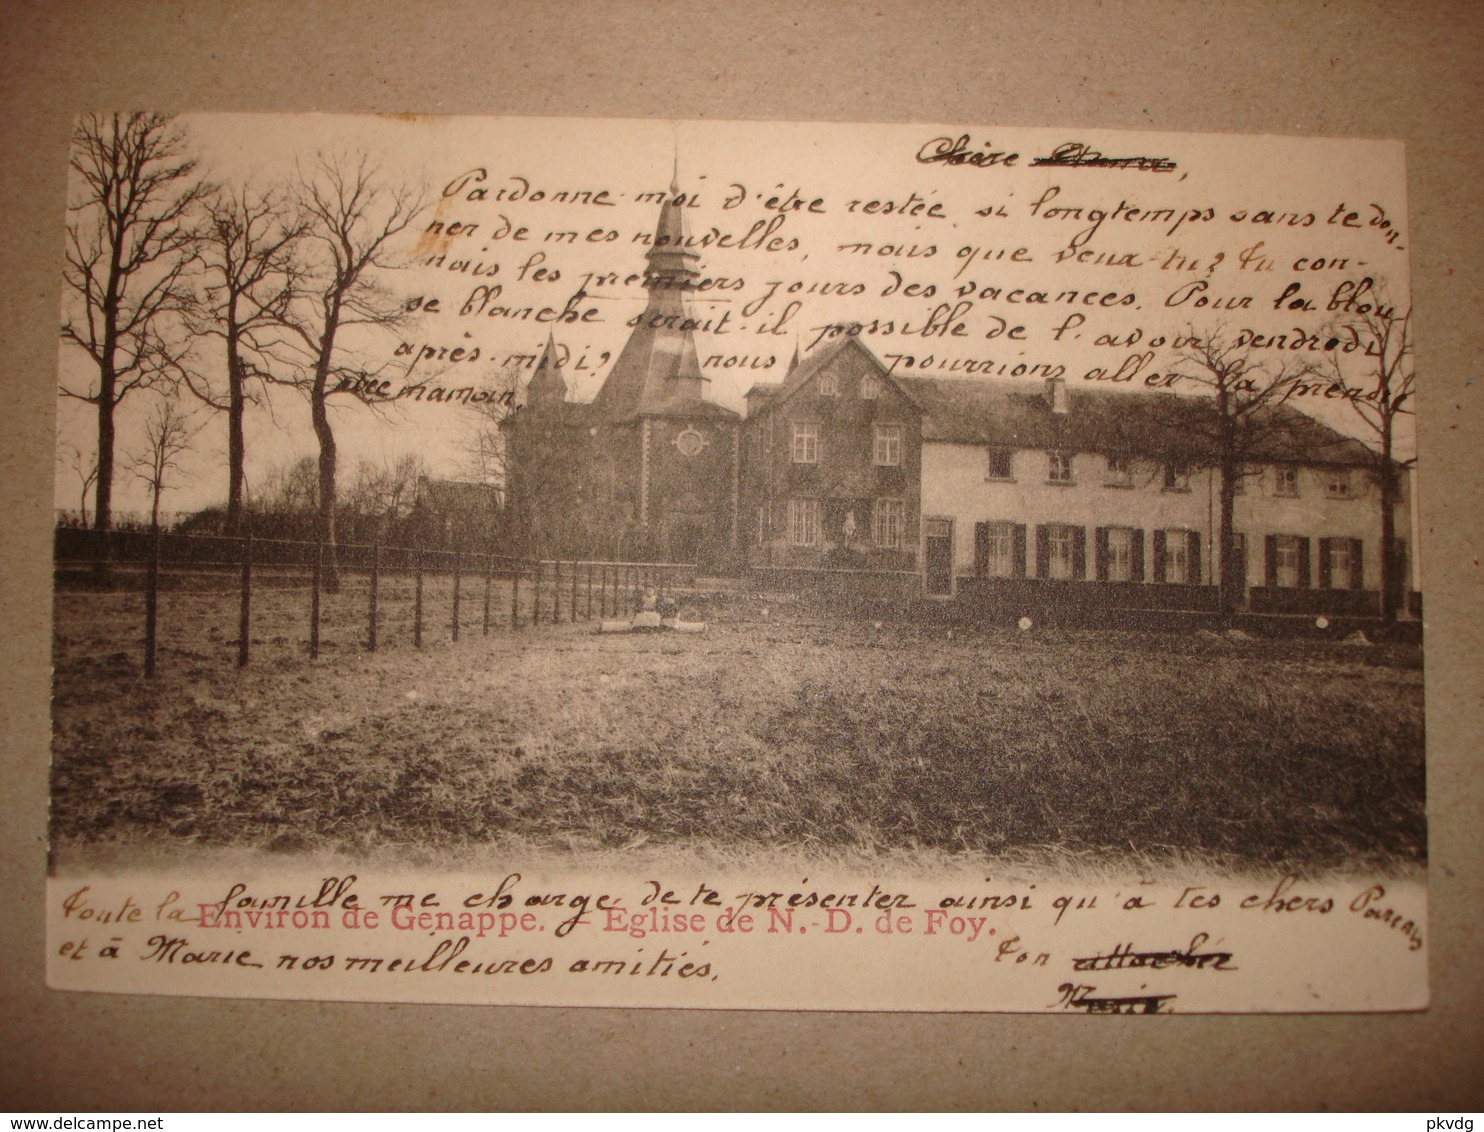 Chère
Pardonne-moi d'être restée si longtemps sans te don-
ner de mes nouvelles, mais que veux-tu? tu con-
nais les premiers jours des vacances. Pour la blou
se blanche serait-il possible de l'avoir vendredi
après-midi? nous pourrions aller la prendre
avec maman.
Environ de Genappe. - Église de N.-D. de Foy.
Toute la famille me charge de te présenter ainsi qu'à tes chers Parents
et à Marie nos meilleures amitiés.
Ton
delcampe.net
pkvdg